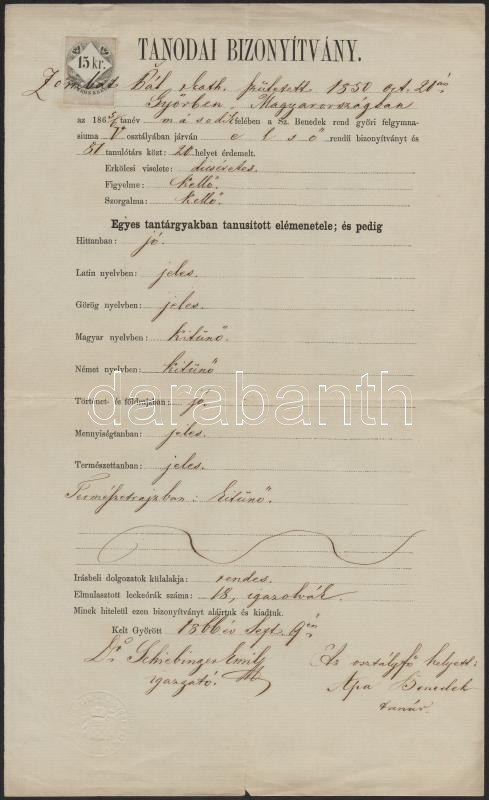 15 kr.
TANODAI BIZONYÍTVÁNY.
Pál kath. született 1850 oct. 20án
Győrben, Magyarországban
az 1865/6 tanév második felében a Sz. Benedek rend győri felgymna-
siuma V. osztályában járván első rendü bizonyítványt és
81 tanulótárs közt: 20 helyet érdemelt.
Erkölcsi viselete: dicséretes.
Figyelme: kellő.
Szorgalma: kellő.
Egyes tantárgyakban tanusított elémenetele; és pedig
Hittanban: jó.
Latin nyelvben: jeles.
Görög nyelvben: jeles.
Magyar nyelvben: kitünő.
Német nyelvben: kitünő
Történet- és földrajzban: jó.
Mennyiségtanban: jeles.
Természettanban: jeles.
Természetrajzban: kitünő.
Irásbeli dolgozatok külalakja: rendes.
Elmulasztott leczkeórák száma: 18, igazolvák.
Minek hiteleül ezen bizonyítványt aláirtuk és kiadtuk.
Kelt Győrött 1866 év Sept 9én
Dr. Schiebinger Emil
igazgató.
Az osztályfő helyett:
Apa Benedek
tanár.
darabanth